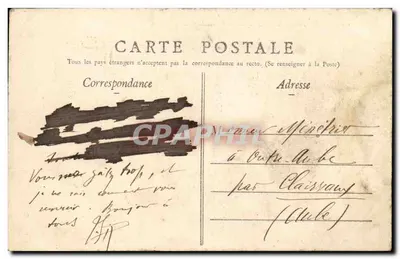 CARTE POSTALE
Tous les pays étrangers n'acceptent pas la correspondance au recto. (Se renseigner à la Poste)
Correspondance
Vous gâtez trop, et
je ne sais comment vous
remercier. Bonjour à
tous
Adresse
Ménétrier
à Outre-Aube
par Clairvaux
(Aube)
CPHPHI